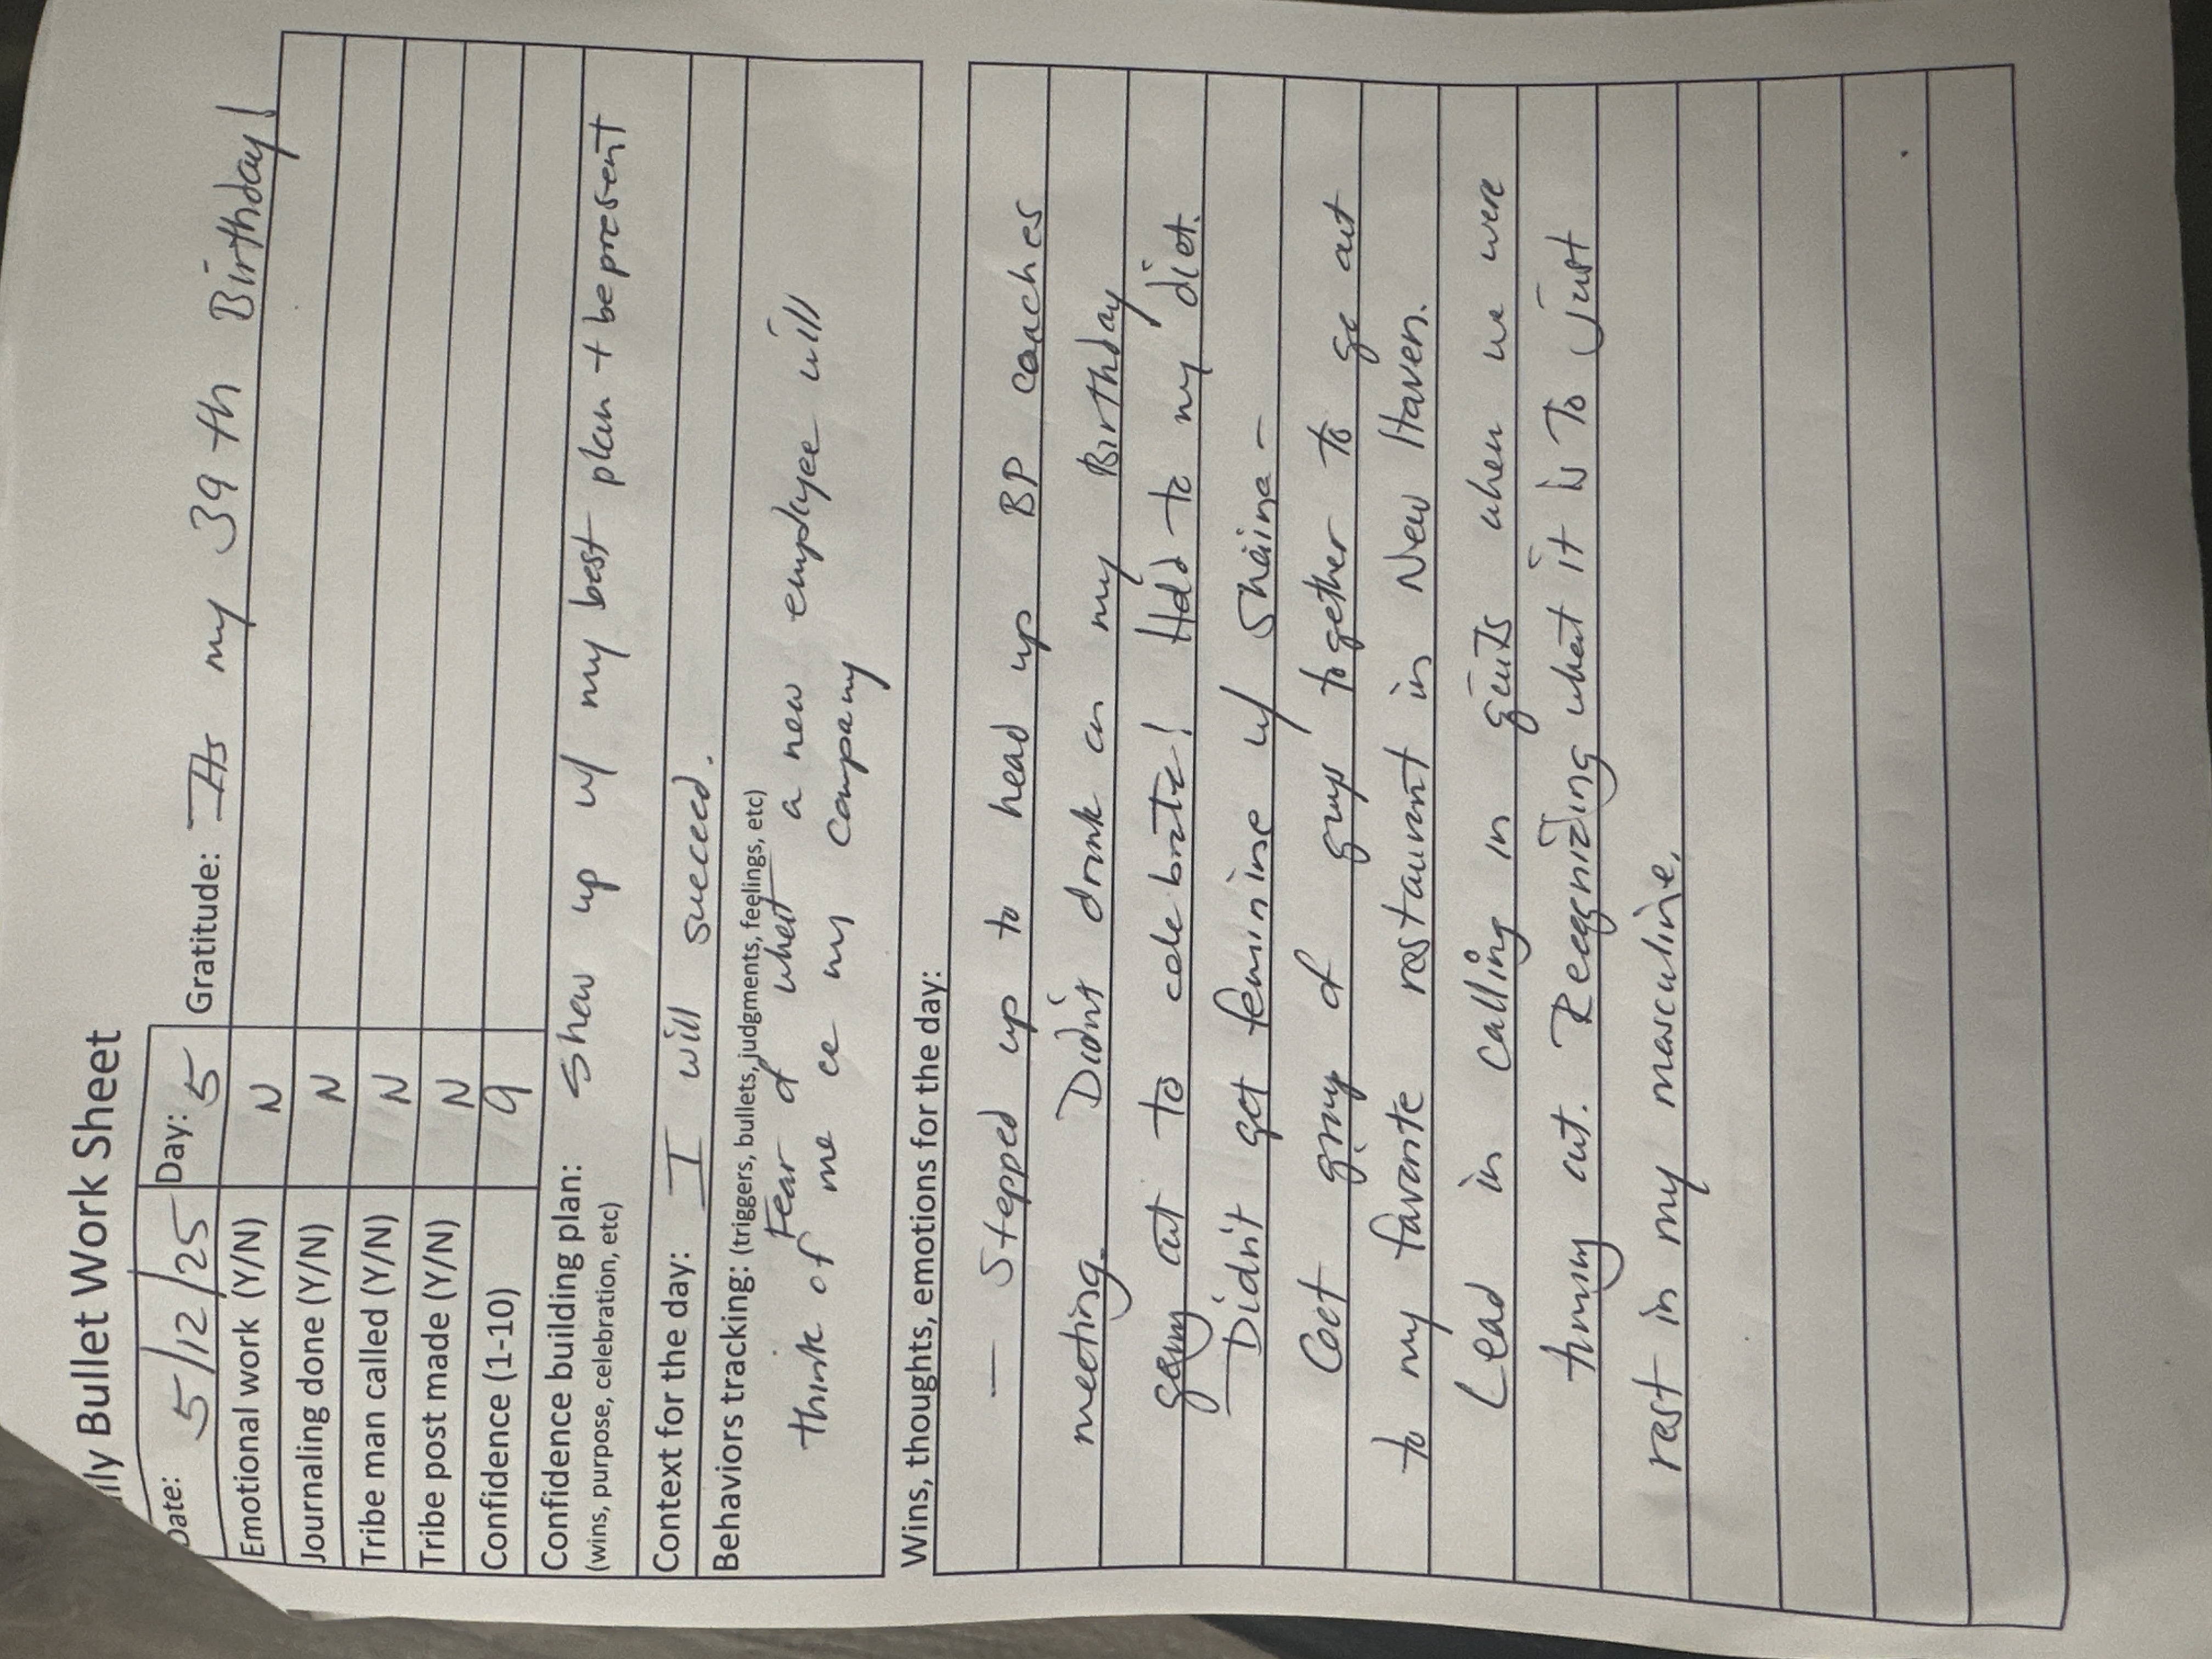 ily Bullet Work Sheet
Date: 5/12/25 Day: 5 Gratitude: Its my 39th Birthday!
Emotional work (Y/N) N
Journaling done (Y/N) N
Tribe man called (Y/N) N
Tribe post made (Y/N) N
Confidence (1-10) 9
Confidence building plan: Show up w/ my best plan + be present
(wins, purpose, celebration, etc)
Context for the day: I will succeed.
Behaviors tracking: (triggers, bullets, judgments, feelings, etc)
Fear of what a new employee will
think of me my company
Wins, thoughts, emotions for the day:
- Stepped up to head up BP coaches
meeting. Didn't drink on my Birthday
going out to celebrate! Held to my diet.
Didn't get feminine w/ Shaina -
Got group of guys together to go out
to my favorite restaurant in New Haven.
Lead in calling in guys when we were
out. Recognizing what it is to just
rest in my masculine.